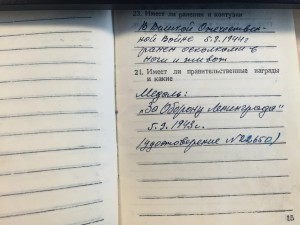 23. Имеет ли ранения и контузии
В Великой Отечествен-
ной Войне 5.9.1941г
ранен осколками в
ноги и живот
24. Имеет ли правительственные награды
и какие
Медаль:
„За Оборону Ленинграда"
5.9.1943г.
(удостоверение №22650)
15